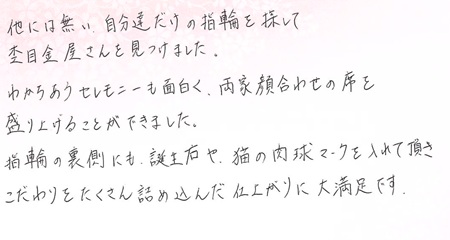 他には無い、自分達だけの指輪を探して
杢目金屋さんを見つけました。
わかちあうセレモニーも面白く、両家顔合わせの席を
盛り上げることができました。
指輪の裏側にも、誕生石や、猫の肉球マークを入れて頂き
こだわりをたくさん詰め込んだ仕上がりに大満足です.